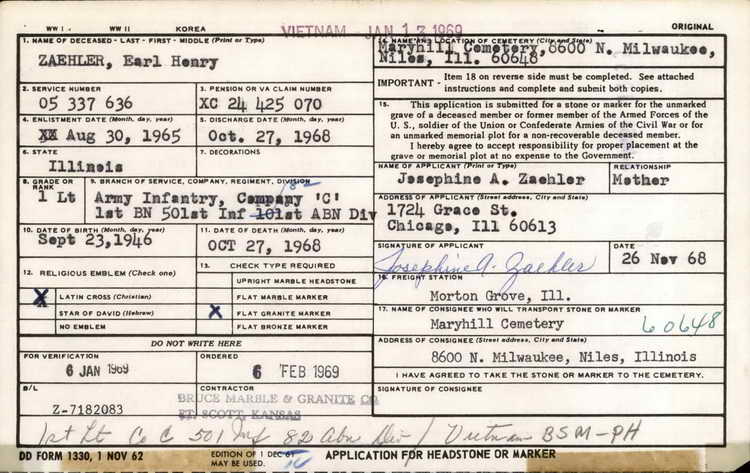 WW I WW II KOREA VIETNAM JAN 13 1969 ORIGINAL
1. NAME OF DECEASED - LAST - FIRST - MIDDLE (Print or Type)
ZAEHLER, Earl Henry
2. SERVICE NUMBER
05 337 636
3. PENSION OR VA CLAIM NUMBER
XC 24 425 070
4. ENLISTMENT DATE (Month, day, year)
XX Aug 30, 1965
5. DISCHARGE DATE (Month, day, year)
Oct. 27, 1968
6. STATE
Illinois
7. DECORATIONS
8. GRADE OR RANK
1 Lt
9. BRANCH OF SERVICE, COMPANY, REGIMENT, DIVISION
Army Infantry, Company 'C'
82
1st BN 501st Inf 101st ABN Div
10. DATE OF BIRTH (Month, day, year)
Sept 23,1946
11. DATE OF DEATH (Month, day, year)
OCT 27, 1968
12. RELIGIOUS EMBLEM (Check one)
X LATIN CROSS (Christian)
STAR OF DAVID (Hebrew)
NO EMBLEM
13. CHECK TYPE REQUIRED
UPRIGHT MARBLE HEADSTONE
FLAT MARBLE MARKER
X FLAT GRANITE MARKER
FLAT BRONZE MARKER
14. NAME AND LOCATION OF CEMETERY (City and State)
Maryhill Cemetery, 8600 N. Milwaukee,
Niles, Ill. 60648
IMPORTANT - Item 18 on reverse side must be completed. See attached
instructions and complete and submit both copies.
15. This application is submitted for a stone or marker for the unmarked
grave of a deceased member or former member of the Armed Forces of the
U. S., soldier of the Union or Confederate Armies of the Civil War or for
an unmarked memorial plot for a non-recoverable deceased member.
I hereby agree to accept responsibility for proper placement at the
grave or memorial plot at no expense to the Government.
NAME OF APPLICANT (Print or Type)
Josephine A. Zaehler
RELATIONSHIP
Mother
ADDRESS OF APPLICANT (Street address, City and State)
1724 Grace St.
Chicago, Ill 60613
SIGNATURE OF APPLICANT
Josephine A. Zaehler
DATE
26 Nov 68
16. FREIGHT STATION
Morton Grove, Ill.
17. NAME OF CONSIGNEE WHO WILL TRANSPORT STONE OR MARKER
Maryhill Cemetery 60648
ADDRESS OF CONSIGNEE (Street address, City and State)
8600 N. Milwaukee, Niles, Illinois
I HAVE AGREED TO TAKE THE STONE OR MARKER TO THE CEMETERY.
SIGNATURE OF CONSIGNEE
DO NOT WRITE HERE
FOR VERIFICATION
6 JAN 1969
ORDERED
6 FEB 1969
B/L
Z-7182083
CONTRACTOR
BRUCE MARBLE & GRANITE CO
FT. SCOTT, KANSAS
1st Lt Co C 501 Inf 82 Abn Div / Vietnam BSM-PH
DD FORM 1330, 1 NOV 62
EDITION OF 1 DEC 61 MAY BE USED.
APPLICATION FOR HEADSTONE OR MARKER